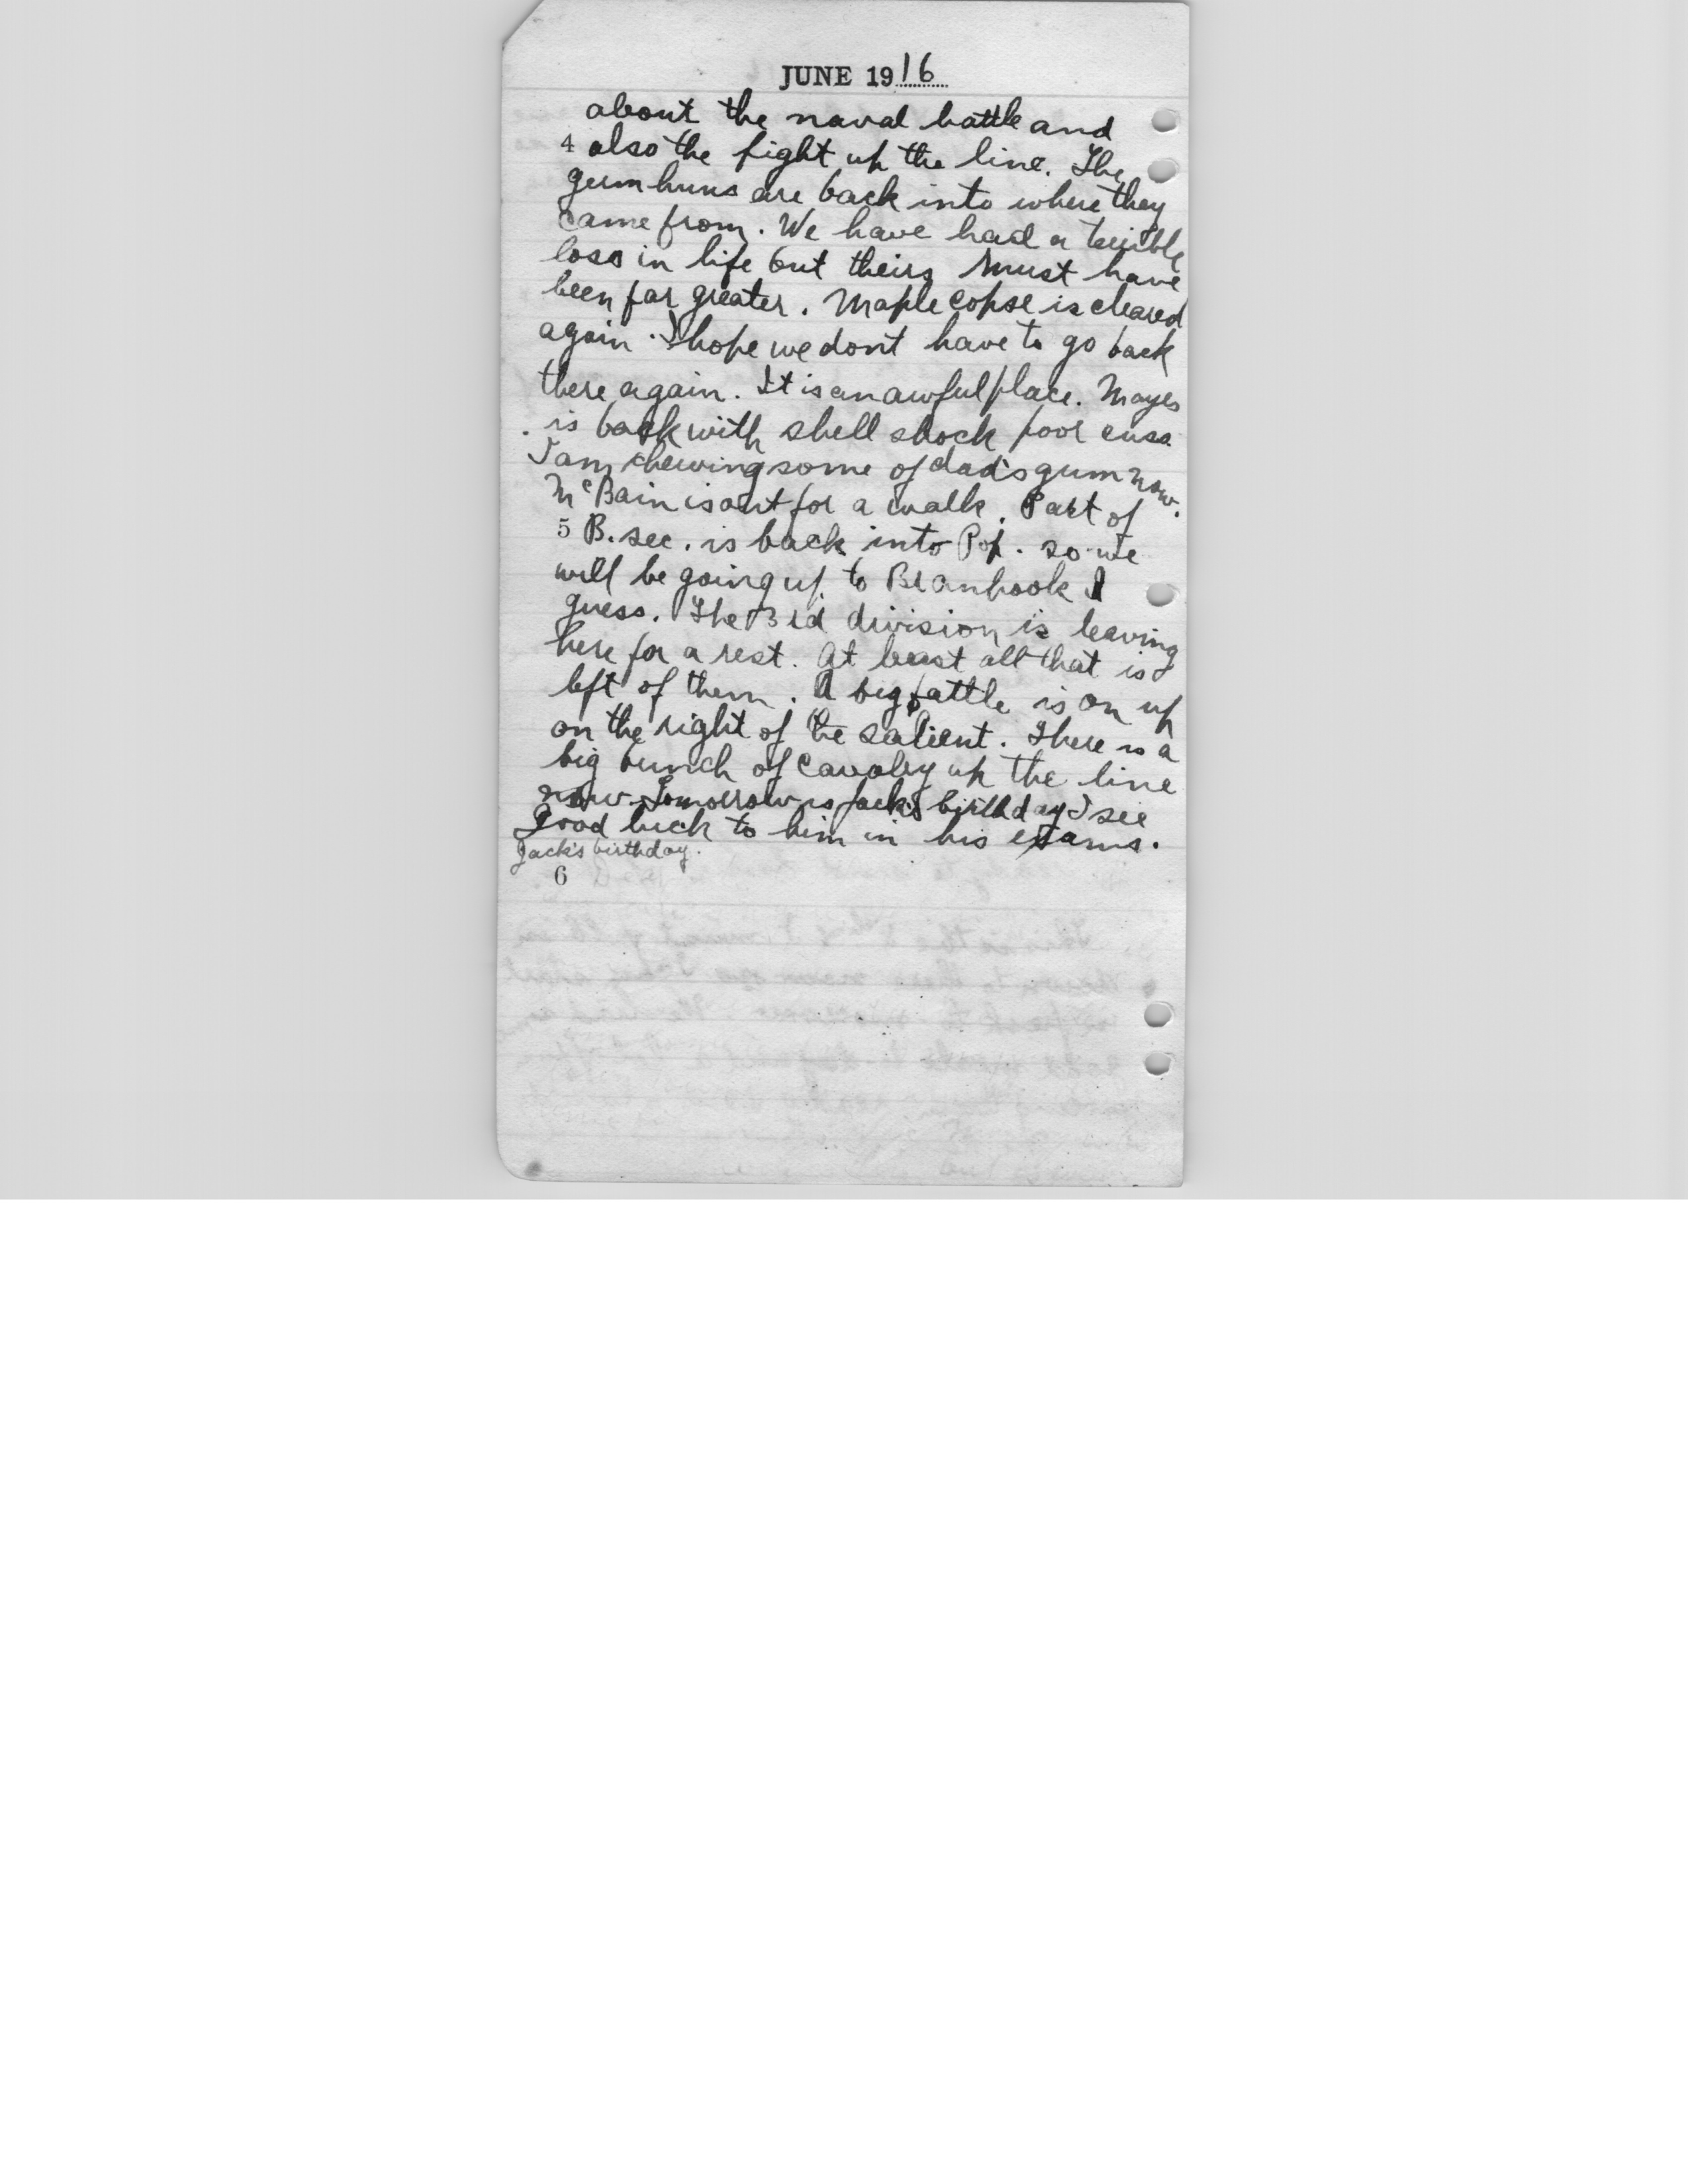 JUNE 1916
about the naval battle and
4 also the fight up the line. The
germhuns are back into where they
came from. We have had a terrible
loss in life but theirs must have
been far greater. Maple copse is cleared
again. I hope we dont have to go back
there again. It is an awful place. Mayes
is back with shell shock poor cuss.
I am chewing some of dad's gum now.
McBain is out for a walk. Part of
5 B. sec. is back into Pop. so we
will be going up to Branhook I
guess. The 3rd division is leaving
here for a rest. At least all that is
left of them. A big battle is on up
on the right of the salient. There is a
big bunch of cavalry up the line
now. Tomorrow is Jack's birthday I see
Good luck to him in his exams.
Jack's birthday.
6